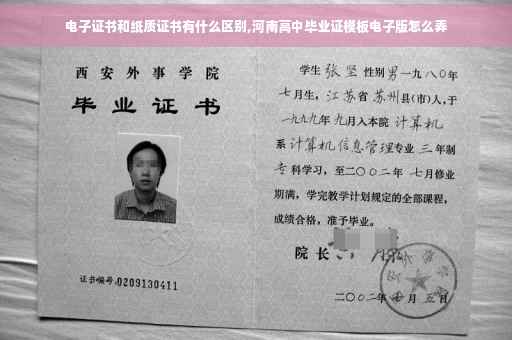 电子证书和纸质证书有什么区别,河南高中毕业证模板电子版怎么弄
西安外事学院
毕业证书
证书编号:0209130411
学生 张坚 性别 男 一九八〇年
七月生, 江苏省 苏州县(市)人,于
一九九九年 九月入本院 计算机
系 计算机信息管理专业 三 年制
专 科学习, 至二〇〇二年 七月修业
期满, 学完教学计划规定的全部课程,
成绩合格, 准予毕业。
院长
二〇〇二年 月 五日